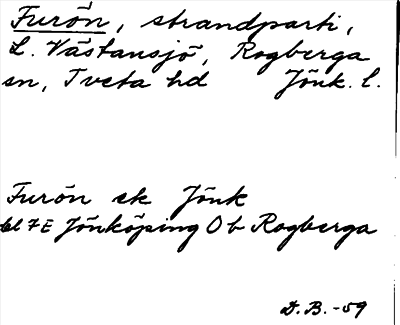 Furön, strandparti,
L. Västansjö, Rogberga
sn, Tveta hd Jönk. l.
Furön ek Jönk
bl 7E Jönköping Ob Rogberga
D.B.-59